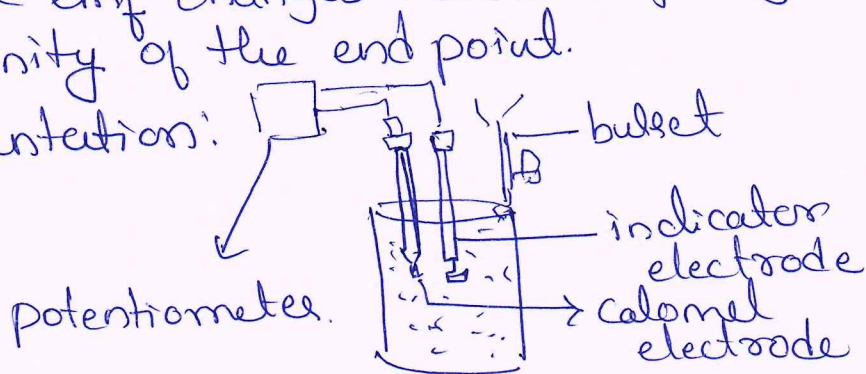 emf changes
nity of the end point.
ntation:
bulset
indicator
electrode
potentiometer.
calomel
electrode